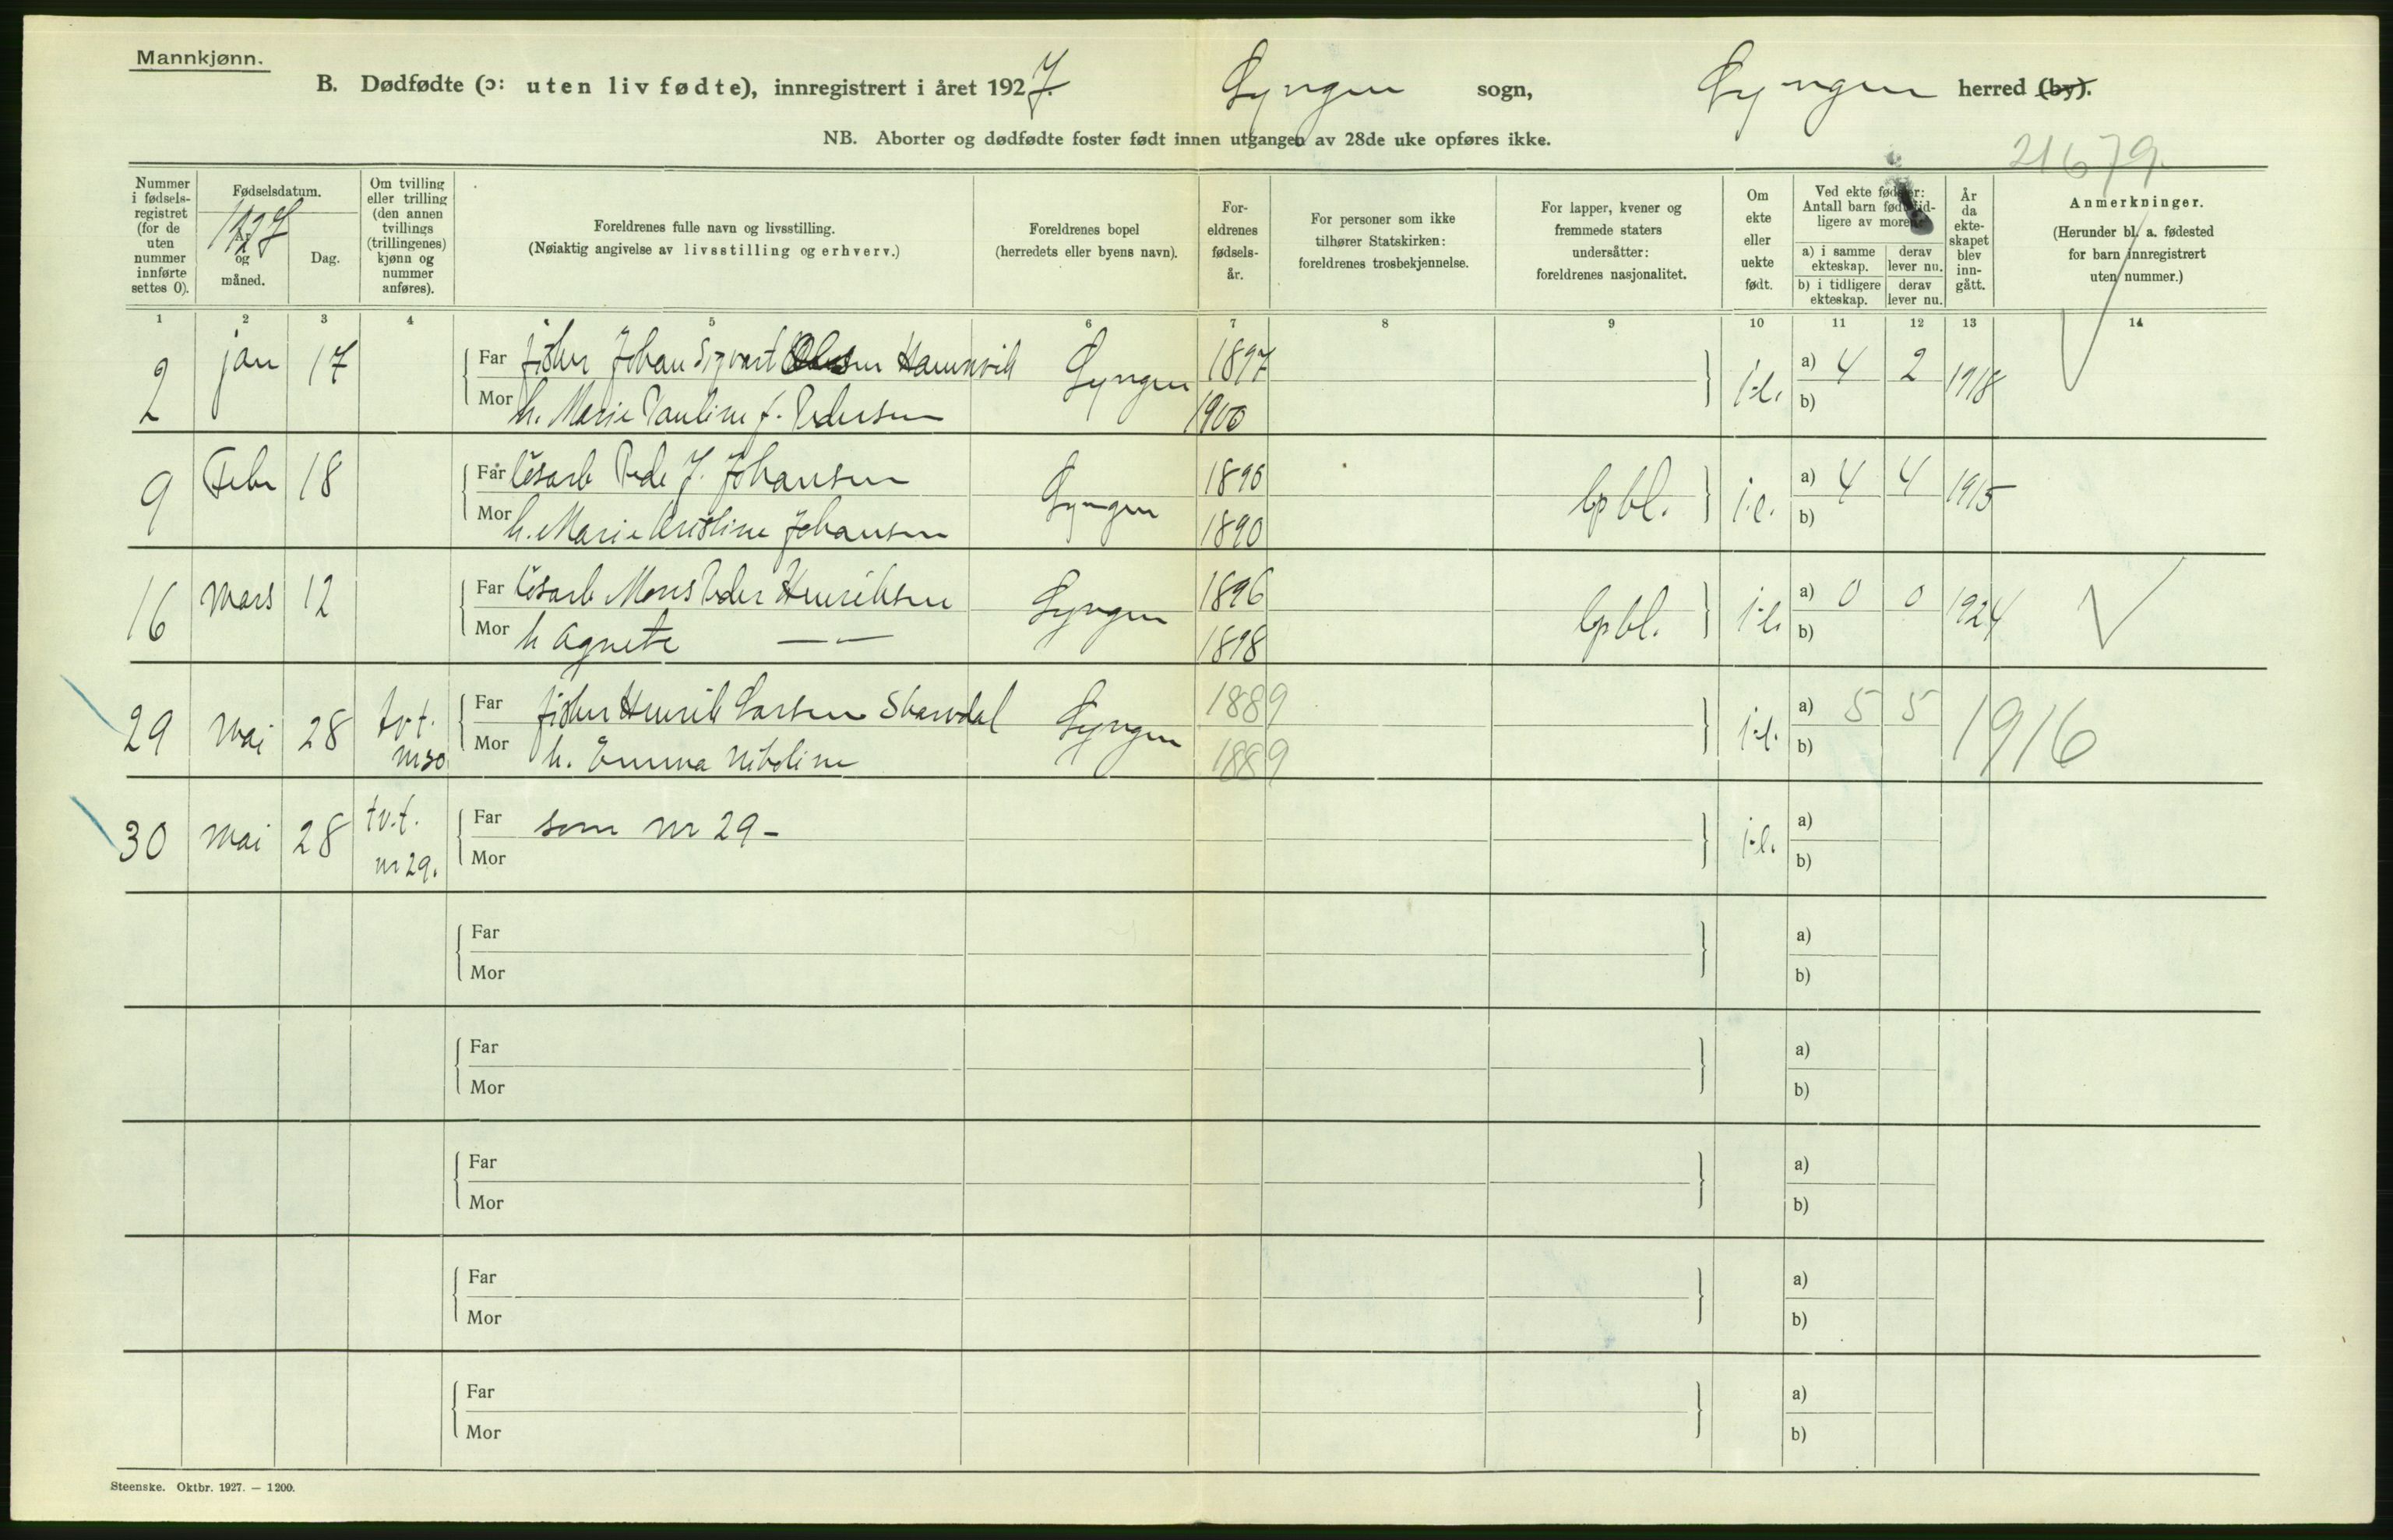 Mannkjønn.
B. Dødfødte (ɔ: uten liv fødte), innregistrert i året 1927. Lyngen sogn, Lyngen herred (by).
NB. Aborter og dødfødte foster født innen utgangen av 28de uke opføres ikke.
21679.
Nummer i fødsels-registret (for de uten nummer innførte settes 0).
Fødselsdatum.
1927
År og måned.
Dag.
Om tvilling eller trilling (den annen tvillings (trillingenes) kjønn og nummer anføres).
Foreldrenes fulle navn og livsstilling.
(Nøiaktig angivelse av livsstilling og erhverv.)
Foreldrenes bopel
(herredets eller byens navn).
For-eldrenes fødsels-år.
For personer som ikke tilhører Statskirken: foreldrenes trosbekjennelse.
For lapper, kvener og fremmede staters undersåtter: foreldrenes nasjonalitet.
Om ekte eller uekte født.
Ved ekte fødsler: Antall barn født tid-ligere av moren:
a) i samme ekteskap.
derav lever nu.
b) i tidligere ekteskap.
derav lever nu.
År da ekte-skapet blev inn-gått.
Anmerkninger.
(Herunder bl. a. fødested for barn innregistrert uten nummer.)
1 2 3 4 5 6 7 8 9 10 11 12 13 14
2 jan 17 Far fisker Johan Sigvart Hamnvik Lyngen 1897 a) 4 2 1918
Mor h. Marie Pauline f. Pedersen 1900 b)
9 Febr 18 Far løsarb Peder J. Johansen Lyngen 1896 lp bl. a) 4 4 1915
Mor h. Marie Kristine Johansen 1890 b)
16 mars 12 Far løsarb Mons Peder Henriksen Lyngen 1896 lp bl. a) 0 0 1924
Mor h Agnete — — 1898 b)
29 mai 28 tvt. nr 30 Far fisker Henrik Larsen Skarvdal Lyngen 1889 a) 5 5 1916
Mor h. Emma Nikoline 1889 b)
30 mai 28 tv.t. nr 29. Far som nr 29 - a)
Mor b)
Far a)
Mor b)
Far a)
Mor b)
Far a)
Mor b)
Far a)
Mor b)
Far a)
Mor b)
Steenske. Oktbr. 1927. — 1200.